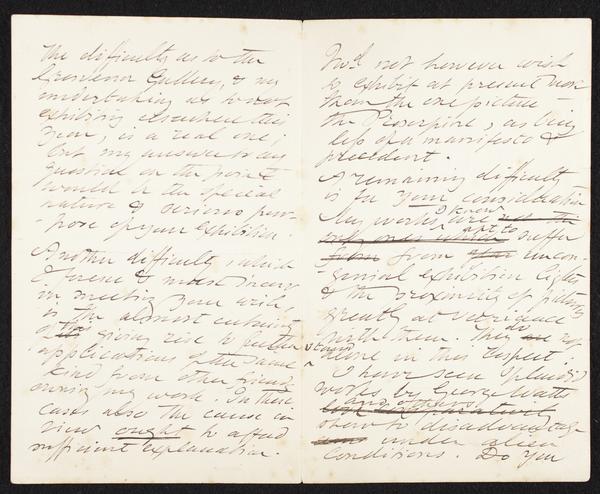 The difficulty as to the
Grosvenor Gallery, & my
undertaking as to not
exhibiting elsewhere this
year, is a real one,
but my answer to any
question on the point
would be the special
nature & serious pur-
-pose of your exhibition
Another difficulty which
I foresee & must incur
in meeting your wish
is the almost certainty
of its giving rise to further
applications of the same
kind from other friends
owning my work. In these
cases also the cause in
view ought to afford
sufficient explanation.
I wd. not however wish
to exhibit at present more
than the one picture –
the Proserpine, as being
less of a manifesto &
precedent.
A remaining difficulty
is for your consideration
My works I know are
apt to suffer
from uncon-
-genial exhibition lights
& the proximity of pictures
greatly at variance
with them. They do not
alone in this respect.
I have seen splendid
works by George Watts
and others
show to disadvantage
under alien
conditions. Do you